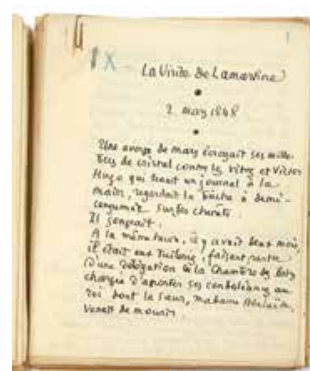 IX -
La Visite de Lamartine
2 mars 1848
Une averse de mars écrasait ses mille
becs de cristal contre les vitres et Victor
Hugo qui tenait un journal à la
main, regardait la bûche à demi-
consumée sur les chenêts.
Il songeait.
A la même heure, il y avait deux mois,
il était aux Tuileries, faisant partie
d'une délégation de la Chambre des Pairs
chargée d'apporter ses condoléances au
roi dont la sœur, madame Adélaïde,
venait de mourir.